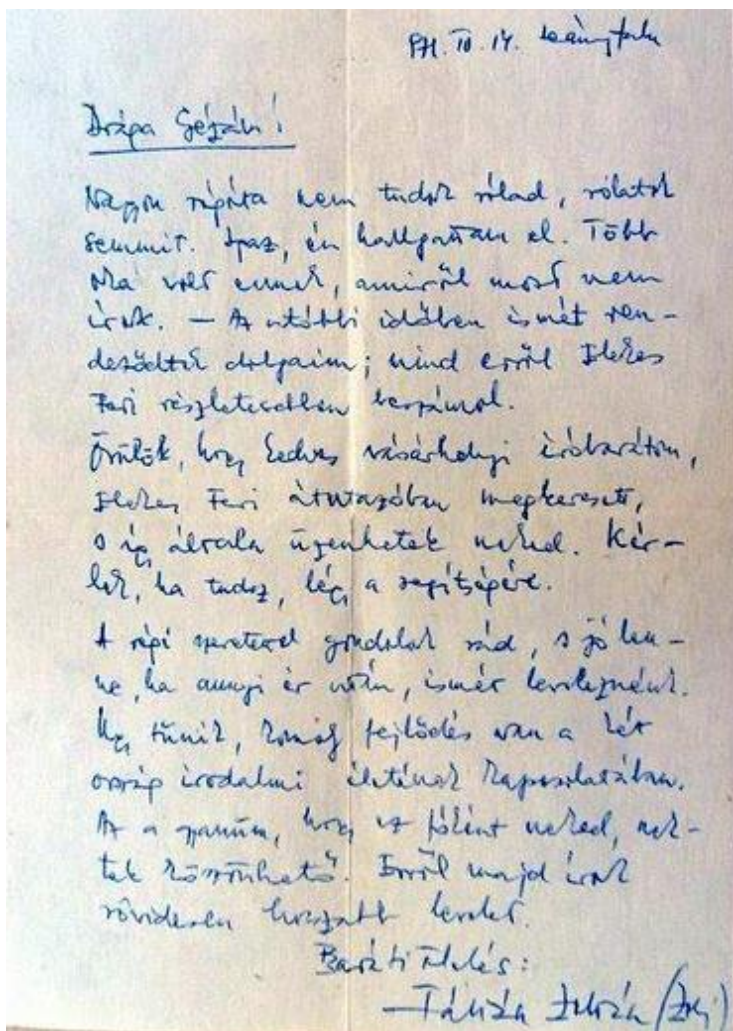 971. IV. 14. Leányfalu
Drága Gézám!
Nagyon régóta nem tudok rólad, rólatok
semmit. Igaz, én hallgattam el. Több
oka volt ennek, amiről most nem
írok. — Az utóbbi időben ismét ren-
deződtek dolgaim; mind erről
Feri részletesebben beszámol.
Örülök, hogy kedves vásárhelyi íróbarátom,
Feri átutazóban megkeresett,
s így általa üzenhetek neked. Kér-
lek, ha tudsz, légy a segítségére.
A régi szeretettel gondolok rád, s jó len-
ne, ha annyi év után, ismét leveleznénk.
Úgy tűnik, komoly fejlődés van a két
ország irodalmi életének kapcsolatában.
Az a gyanúm, hogy ez főként neked, nek-
tek köszönhető. Erről majd írok
rövidesen hosszabb levelet.
Baráti öleléssel:
— Zoltán (Zoli)